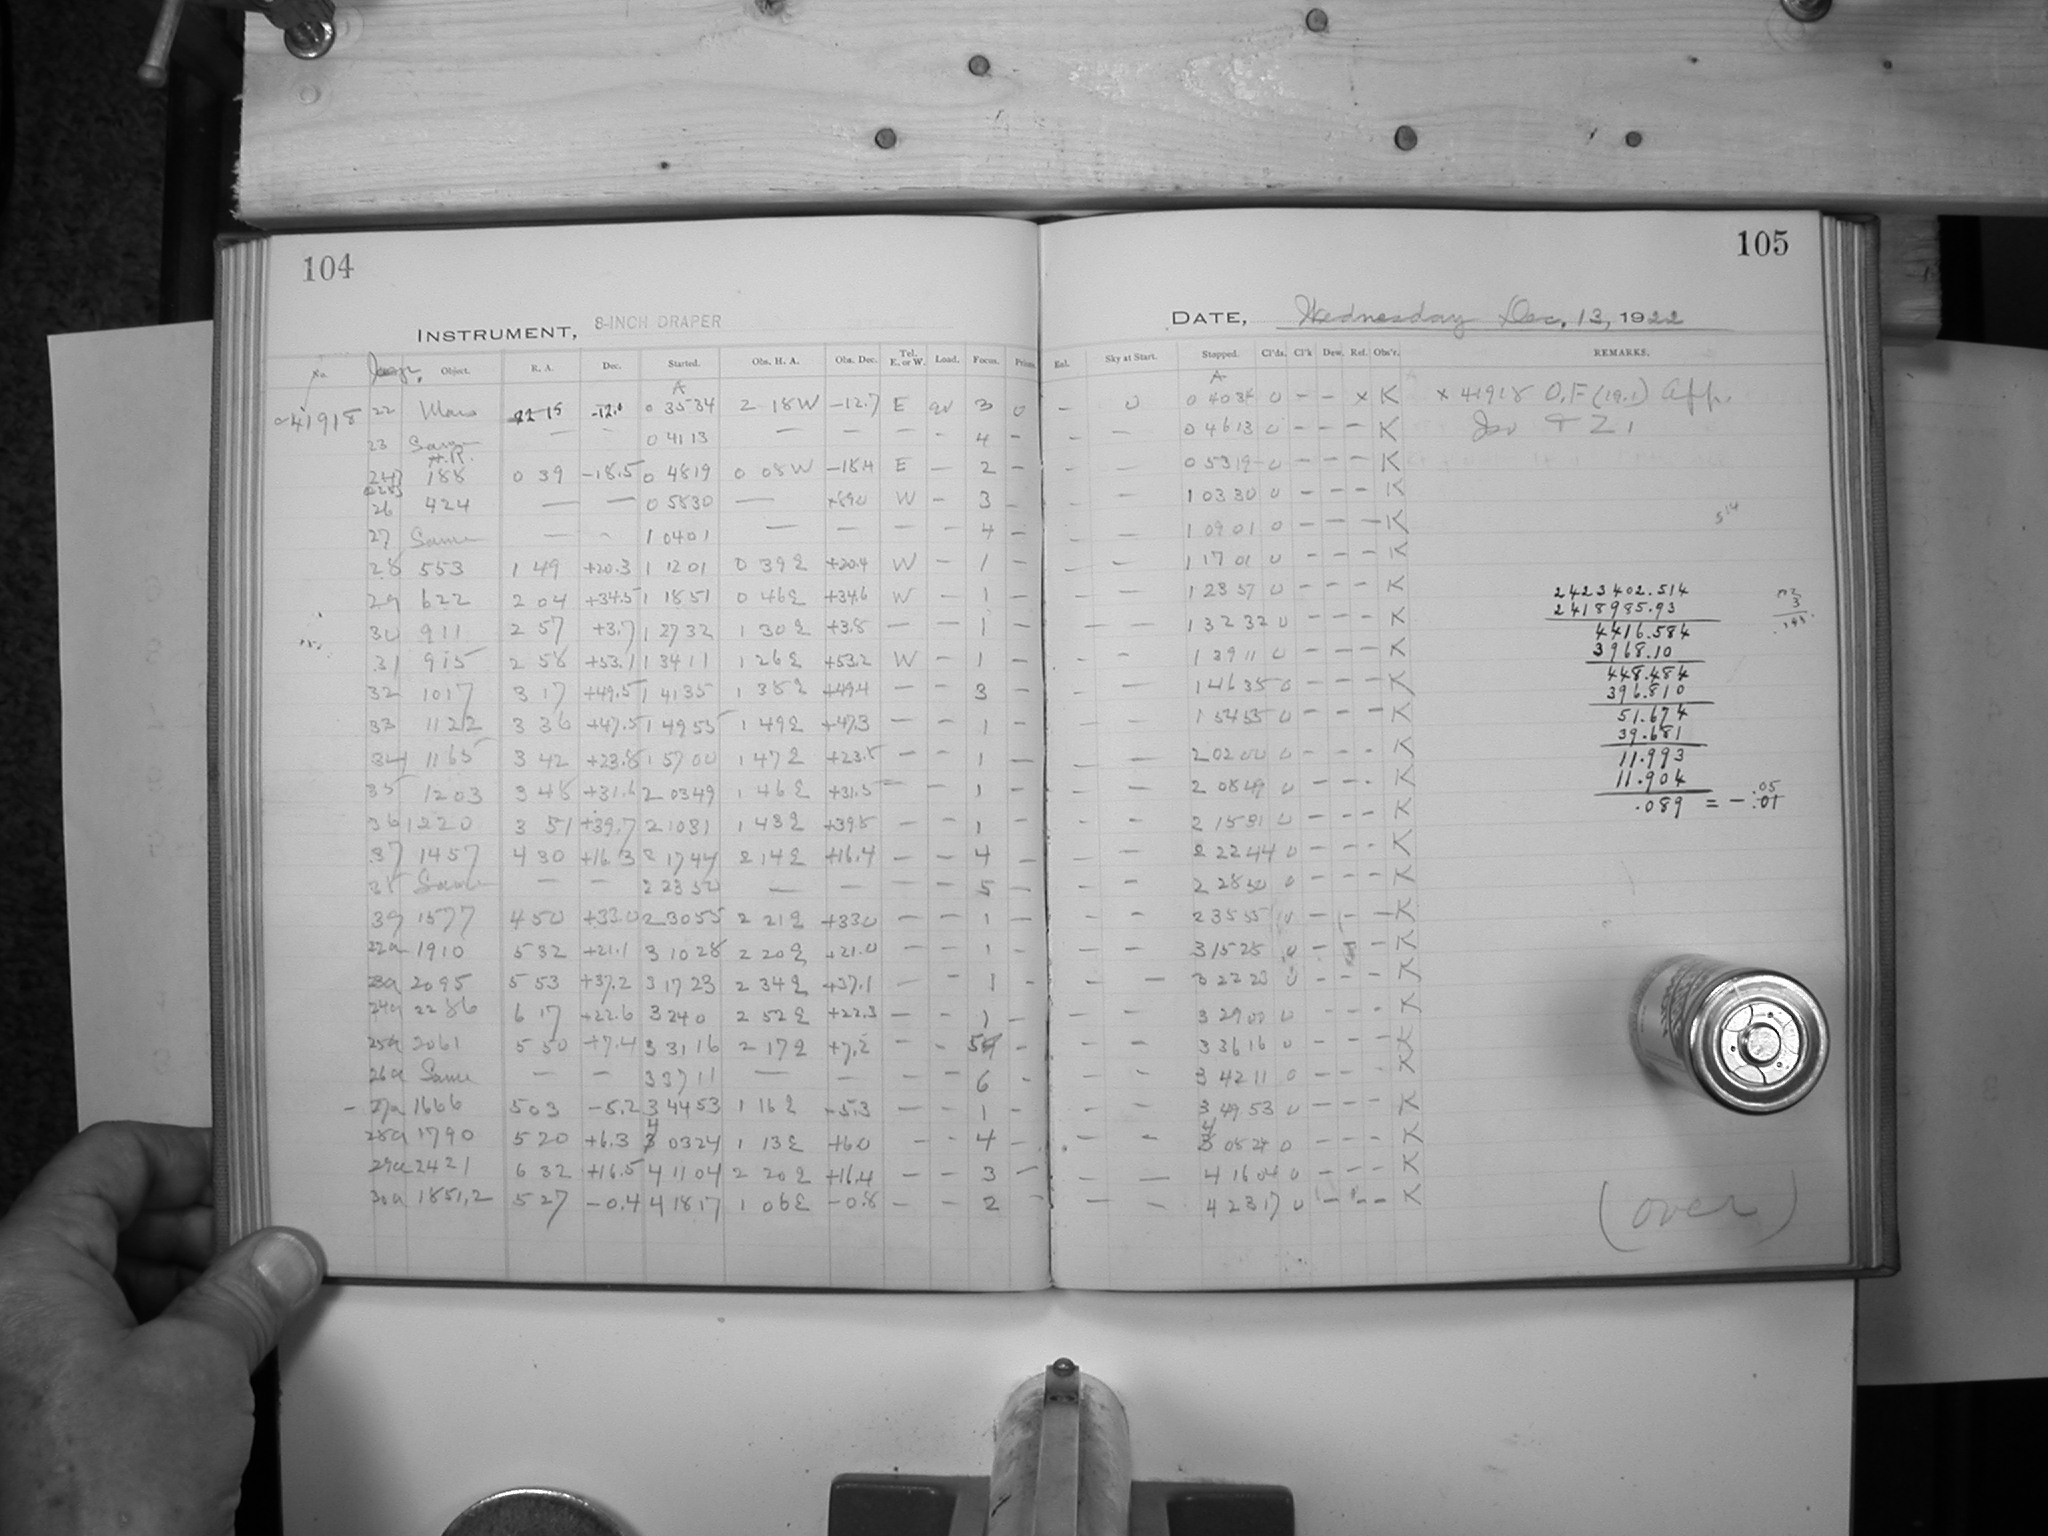 104
INSTRUMENT, 8-INCH DRAPER
No. Object. R. A. Dec. Started. Obs. H. A. Obs. Dec. Tel. E. or W. Load. Focus. Prism.
A
41918 22 Mars 22 15 -12.0 0 35 34 2 18 W -12.7 E 3 0
23 Same — — 0 41 13 — — - - 4 -
H.R.
188 0 39 -18.5 0 48 19 0 08 W -18.4 E — 2 -
26 424 — — 0 58 30 — W - 3 -
27 Same — - 1 04 01 — — - - 4 -
28 553 1 49 +20.3 1 12 01 0 39 E +20.4 W - 1 -
29 622 2 04 +34.5 1 18 51 0 46 E +34.6 W - 1 -
30 911 2 57 +3.7 1 27 32 1 30 E +3.8 — - 1 -
31 915 2 58 +53.1 1 34 11 1 26 E +53.2 W - 1 -
32 1017 3 17 +49.5 1 41 35 1 38 E +49.4 - - 3 -
33 1122 3 36 +47.5 1 49 55 1 49 E +47.3 — - 1 -
34 1165 3 42 +23.8 1 57 00 1 47 E +23.5 - - 1 -
35 1203 3 48 +31.6 2 03 49 1 46 E +31.5 — - 1 -
36 1220 3 51 +39.7 2 10 31 1 43 E +39.5 - - 1 -
37 1457 4 30 +16.3 2 17 44 2 14 E +16.4 — - 4 -
38 Same — — 2 23 50 — — - - 5 -
39 1577 4 50 +33.0 2 30 55 2 21 E +33.0 - - 1 -
22a 1910 5 32 +21.1 3 10 28 2 20 E +21.0 - - 1 -
23a 2095 5 53 +37.2 3 17 23 2 34 E +37.1 - 1 -
24a 2286 6 17 +22.6 3 24 0 2 52 E +22.3 — - 1 -
25a 2061 5 50 +7.4 3 31 16 2 17 E +7.2 - - 5 -
26a Same — — 3 37 11 — — - - 6 -
27a 1666 5 03 -5.2 3 44 53 1 16 E -5.3 — - 1 -
28a 1790 5 20 +6.3 4 03 24 1 13 E +6.0 - - 4 -
29a 2421 6 32 +16.5 4 11 04 2 20 E +16.4 - - 3 -
30a 1851,2 5 27 -0.4 4 18 17 1 06 E -0.8 - - 2
105
DATE, Wednesday Dec. 13, 1922
Exl. Sky at Start. Stopped. Cl'ds. Cl'k Dew. Ref. Obs'r. REMARKS.
A
- 0 0 40 34 0 - - x K x 41918 O.F (19.1) App.
- — 0 46 13 0 - - - K
- - 0 53 19 0 - - - K
- - 1 03 30 0 - - - K
- - 1 09 01 0 - - - K
- — 1 17 01 0 - - - K
- - 1 23 57 0 - - - K
- — 1 32 32 0 - - - K
- - 1 39 11 0 - - - K
- — 1 46 35 0 - - - K
- - 1 54 55 0 - - - K
- - 2 02 00 0 - - - K
- - 2 08 49 0 - - - K
- - 2 15 31 0 - - - K
- - 2 22 44 0 - - - K
- - 2 28 50 0 - - - K
- - 2 35 55 0 - - - K
- - 3 15 28 0 - - K
- — 3 22 23 0 - - - K
- - 3 29 00 0 - - - K
- - 3 36 16 0 - - - K
- - 3 42 11 0 - - - K
- - 3 49 53 0 - - - K
- - 4 08 24 0 - - - K
- — 4 16 04 0 - - - K
- - 4 23 17 0 - - - K
514
2423402.514
2418985.93
4416.584
3968.10
448.484
396.810
51.674
39.681
11.993
11.904
.089 = -.01
.05
(over)